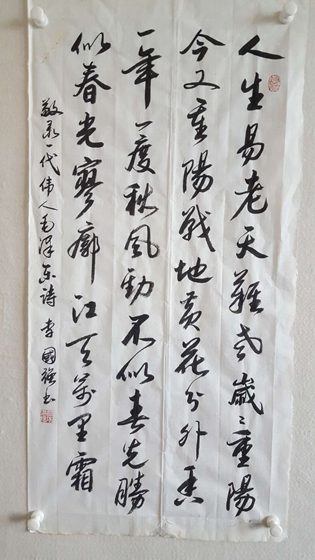 人生易老天難老歲〻重陽
今又重陽戰地黃花分外香
一年一度秋風勁不似春光勝
似春光寥廓江天萬里霜
敬录一代伟人毛泽东詩 李國強书